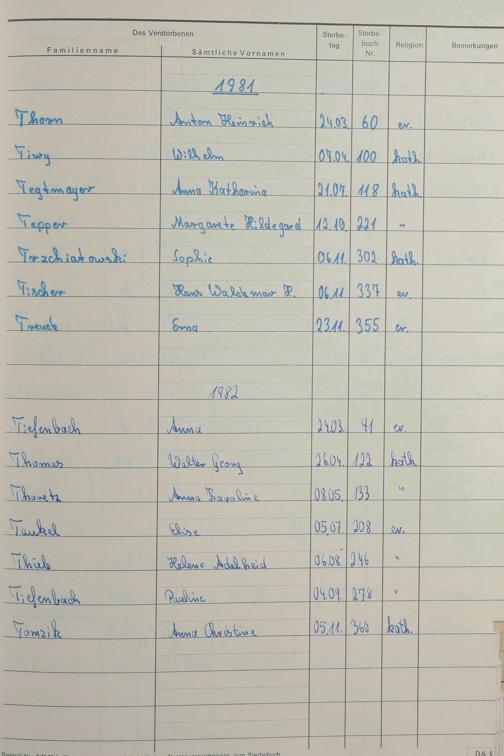 Des Verstorbenen
Familienname Sämtliche Vornamen Sterbe-tag Sterbe-buch Nr. Religion Bemerkungen
1981
Thorn Anton Heinrich 24.03. 60 ev.
Tiwy Wilhelm 07.04. 100 kath.
Tegtmayer Anna Katharina 21.04. 118 kath.
Tepper Margarete Hildegard 12.10. 221 -
Trzchiatowski Sophie 06.11. 302 kath.
Tischer Hans Waldemar H. 06.11. 337 ev.
Erna 23.11. 355 ev.
1982
Tiefenbach Anna 24.03. 91 ev.
Thomas Walter Georg 26.04. 122 kath
Thoretz Anna Karoline 08.05. 133 "
Taukel Elise 05.07. 208 ev.
Helene Adelheid 06.08. 246 "
Tiefenbach Pauline 04.09 278 "
Tomzik Anna Christine 05.11. 360 kath.